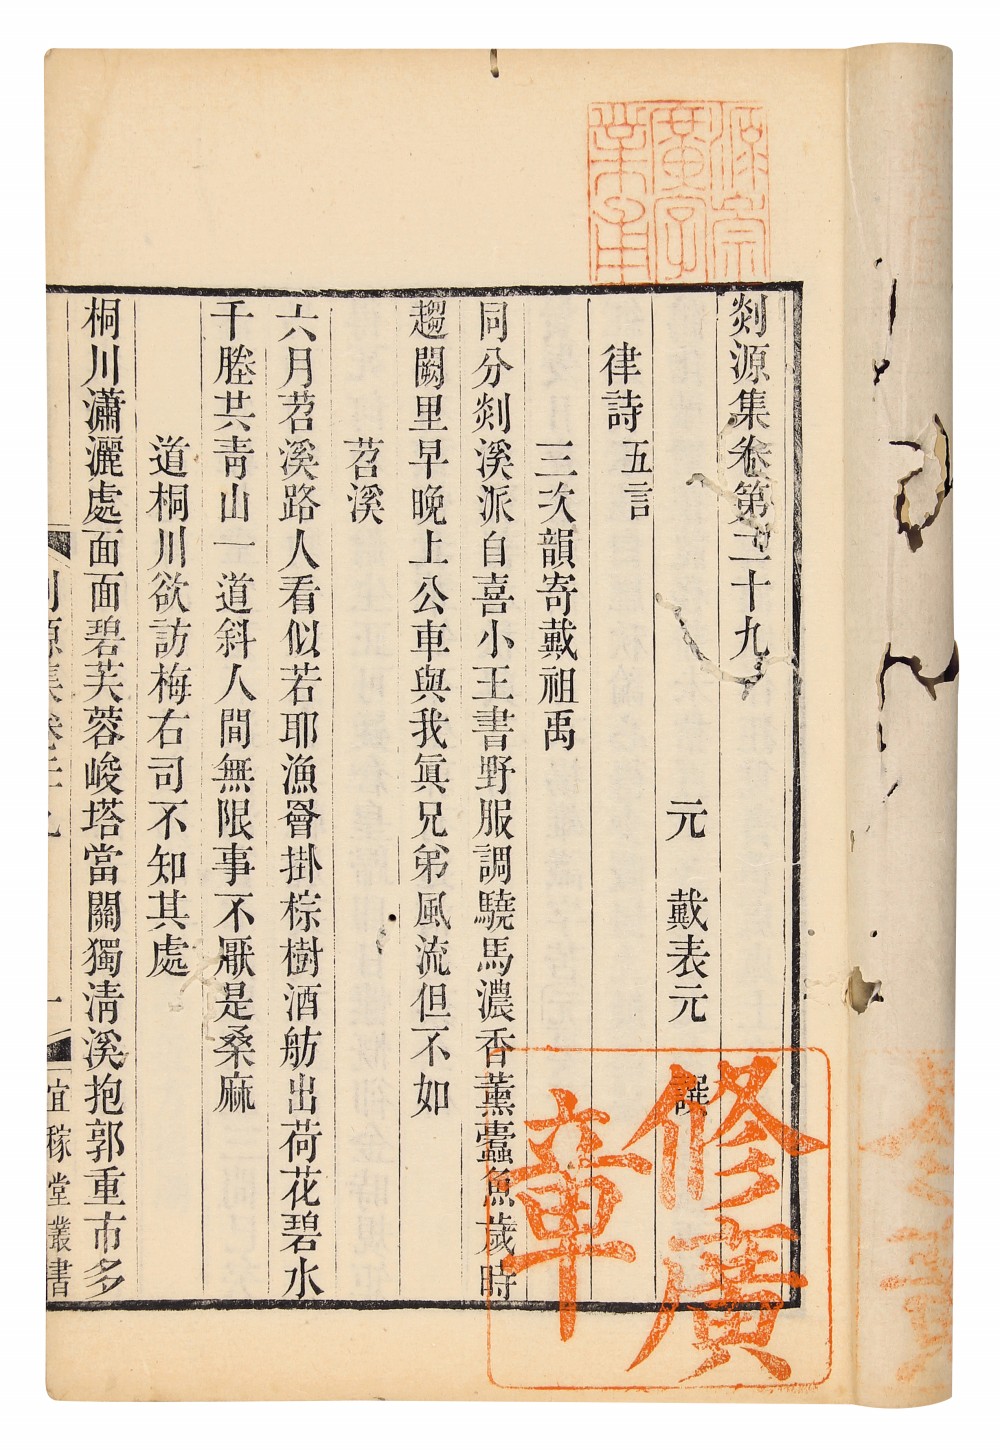 剡源集卷第二十九
元 戴表元 譔
律詩 五言
三次韻寄戴祖禹
同分剡溪派自喜小王書野服調驍馬濃香薰蠹魚歲時
趨闕里早晚上公車與我眞兄弟風流但不如
苕溪
六月苕溪路人看似若耶漁罾掛棕樹酒舫出荷花碧水
千塍共靑山一道斜人間無限事不厭是桑麻
道桐川欲訪梅右司不知其處
桐川瀟灑處面面碧芙蓉峻塔當關獨淸溪抱郭重市多
剡源集卷二十九
一
宜稼堂叢書
修廣
章